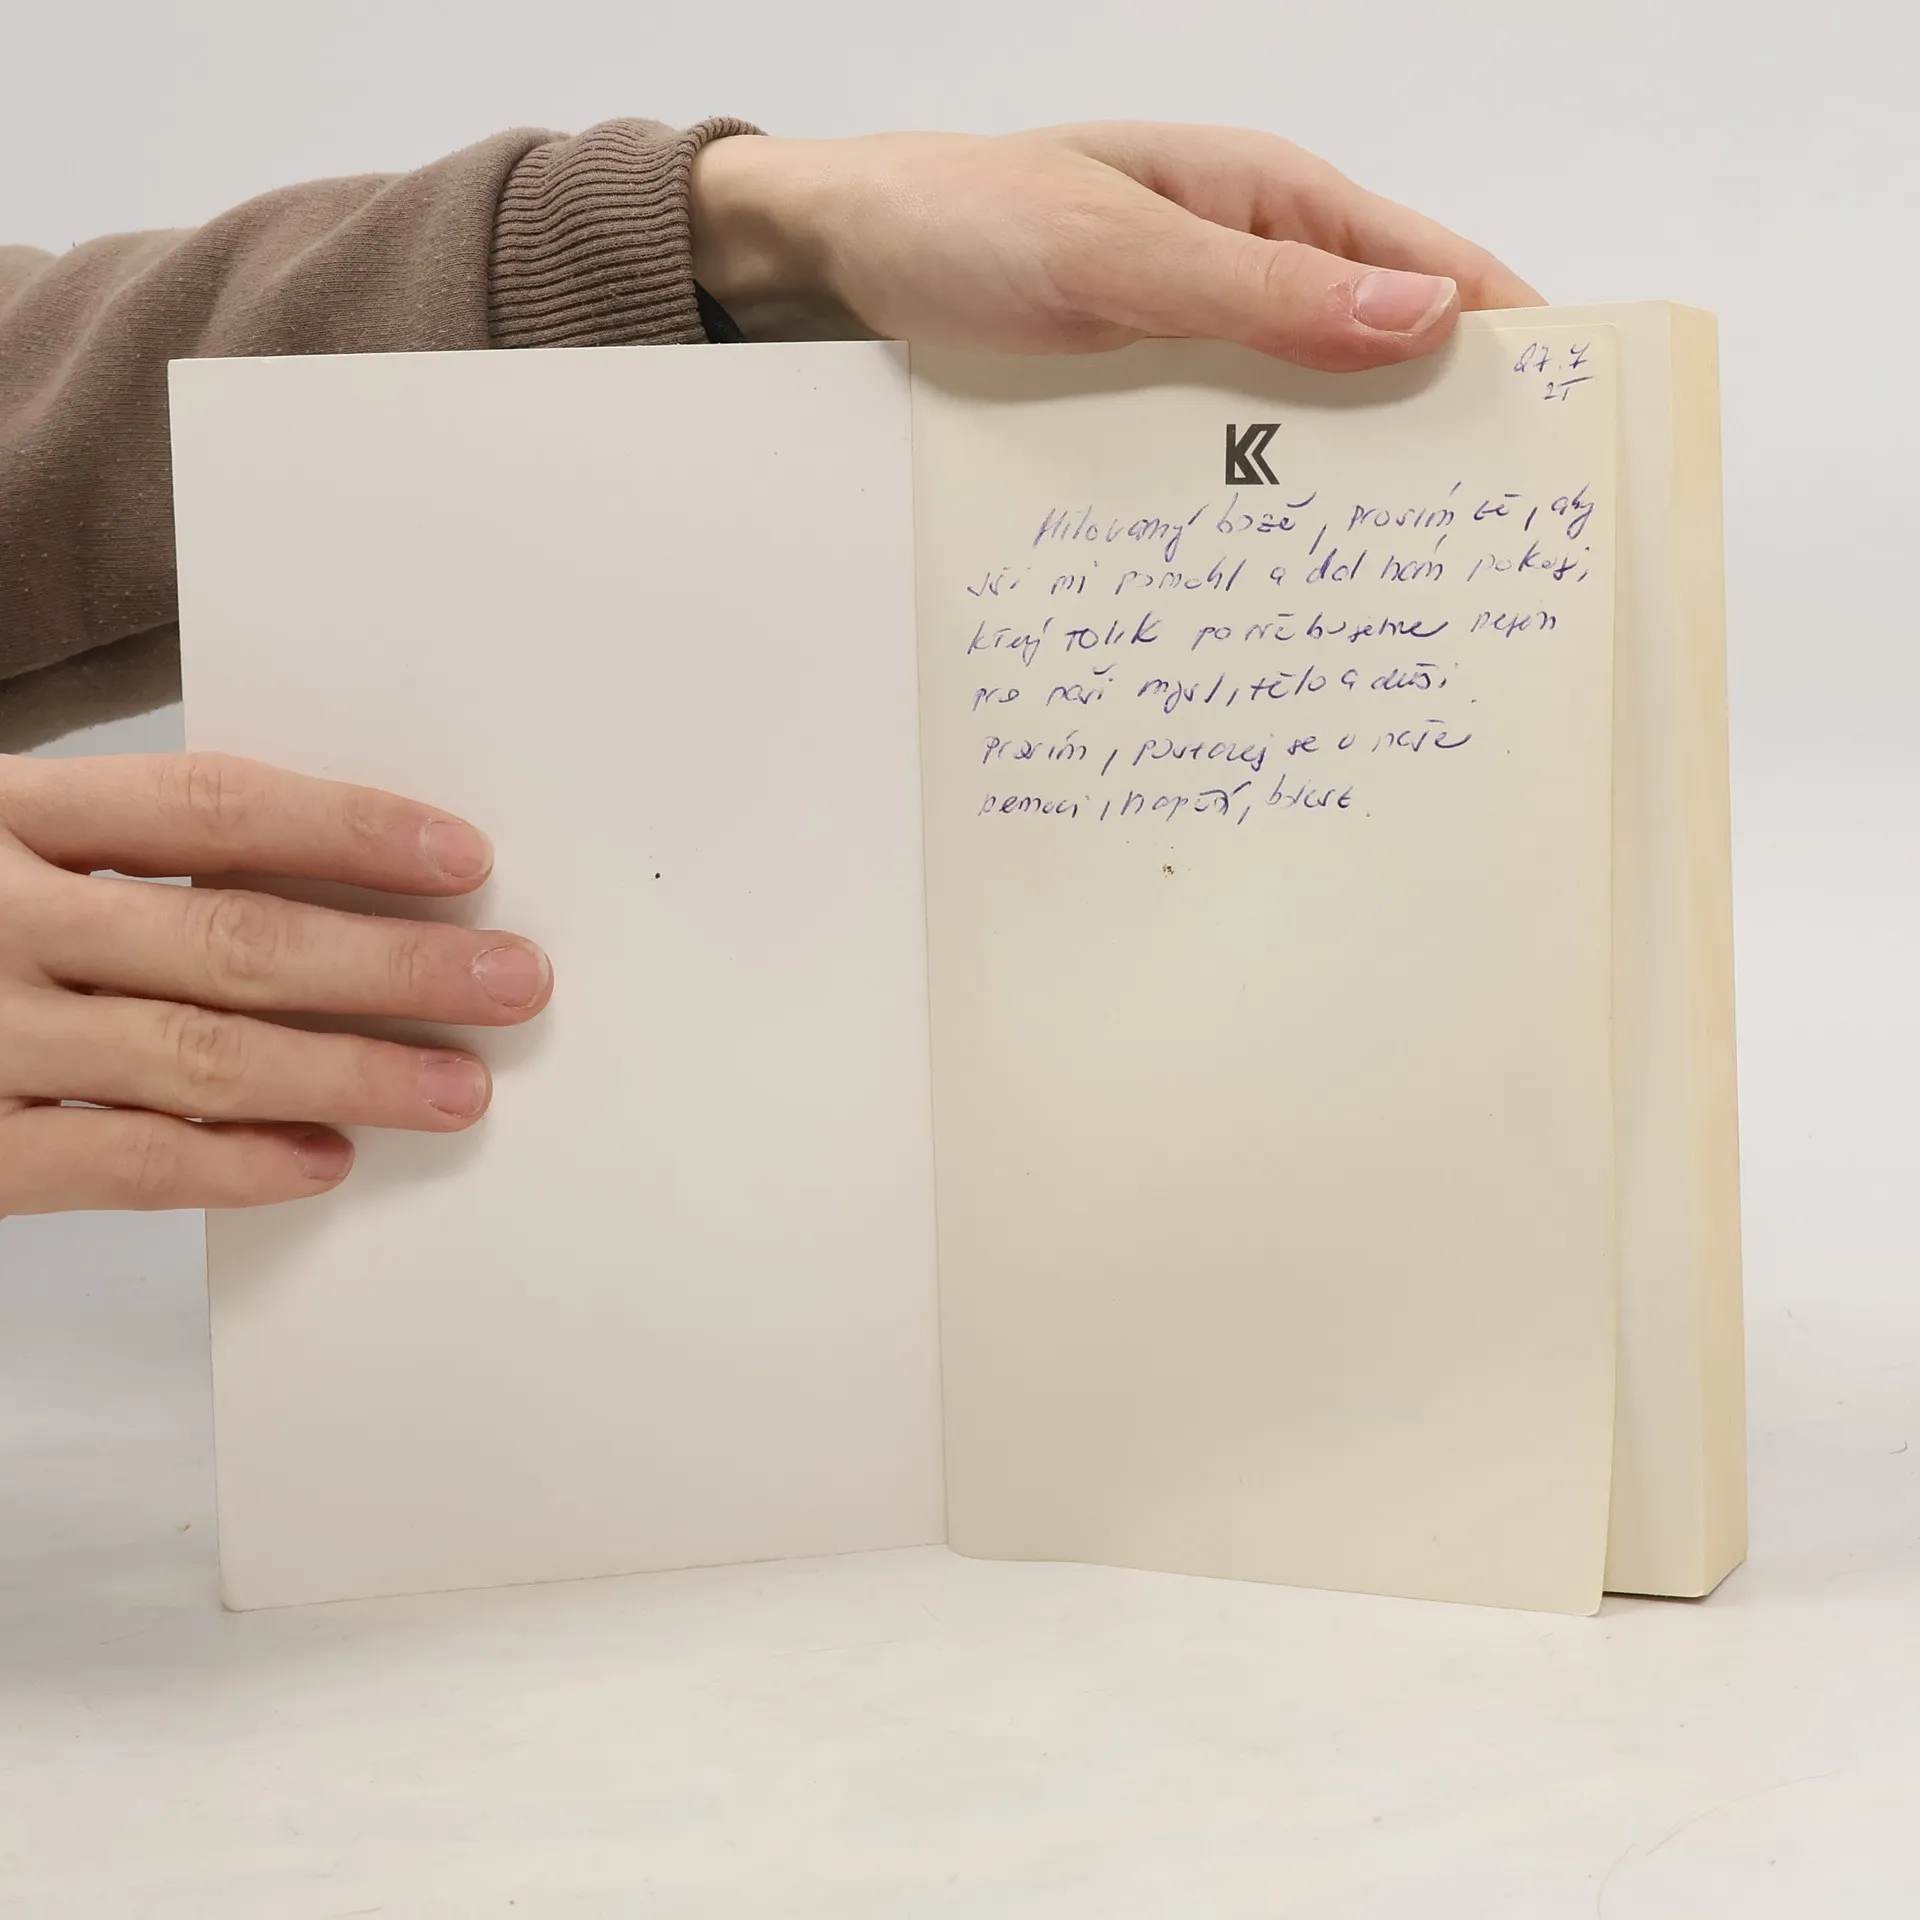 27.7
21
K
Milovaný bože, prosím tě, aby
jsi mi pomohl a dal nám pokoj,
který tolik potřebujeme nejen
pro naši mysl, tělo a duši.
Prosím, postarej se o naše
nemoci, napětí, bolest.